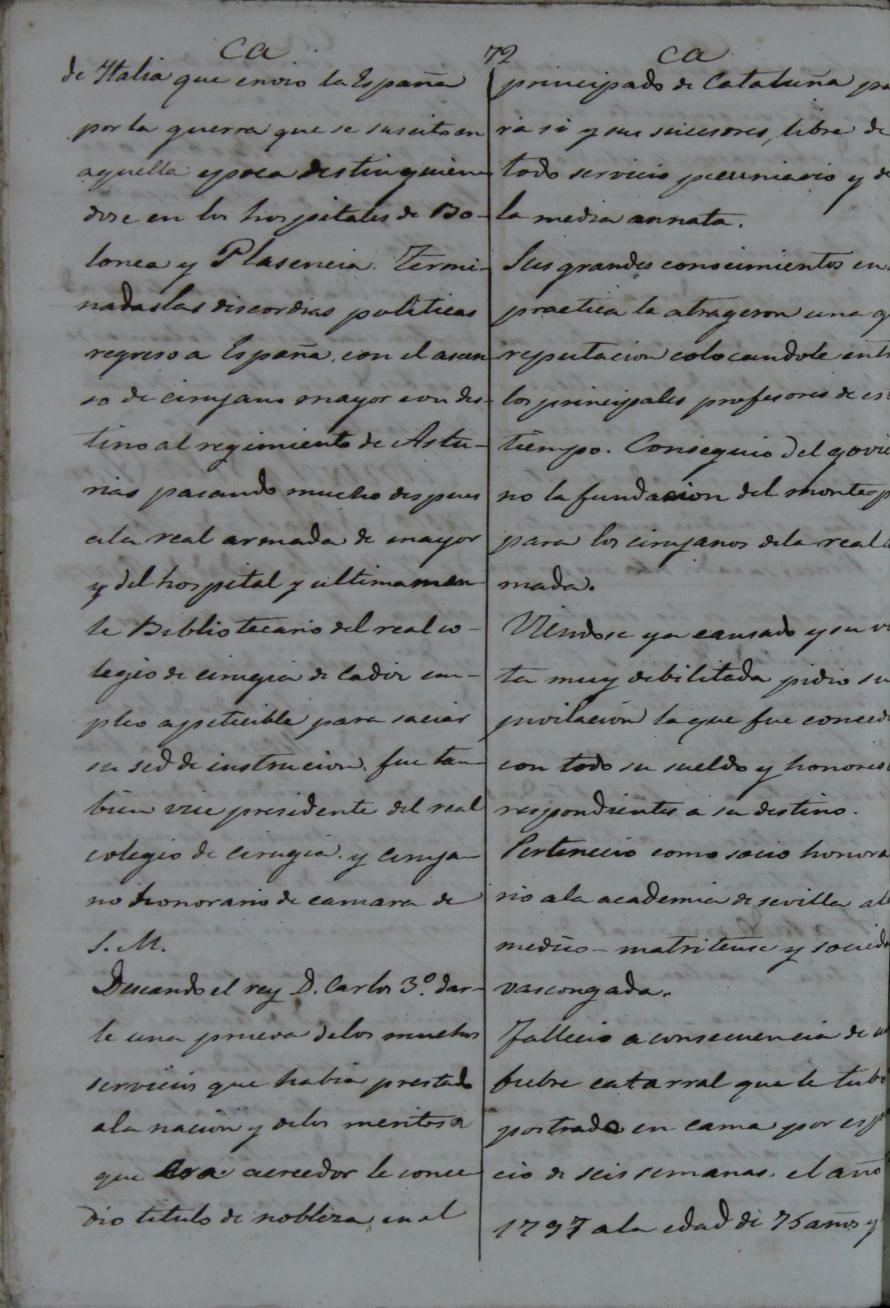 ca
72
ca
de Italia que envio la España
por la guerra que se suscito en
aquella epoca distinguien
dose en los hospitales de Bo-
lonea y Plasencia. Termi-
nadas las discordias politicas
regreso a España, con el ascen
so de cirujano mayor con des-
tino al regimiento de Astu-
rias pasando mucho despues
ala real armada de mayor
y del hospital y ultimamen
te Bibliotecario del real co-
legio de cirugia de Cadiz em-
pleo apeticible para saciar
su sed de instrucion. fue tam
bien vice presidente del real
colegio de cirugia. y ciruja-
no honorario de camara de
S. M.
Deseando el rey D. Carlos 3.º dar-
le una prueva delos muchos
servicios que habia prestado
ala nacion y delos meritos a
que era acreedor le conce
dio titulo de nobleza en el
principado de Cataluña pa
ra si y sus sucesores, libre de
todo servicio pecuniario y de
la media annata.
Sus grandes conocimientos en
practica le atrageron una g
reputacion colocandole ent
los principales profesores de es
tiempo. Consiguio del govie
no la fundacion del montep
para los cirujanos dela real a
mada.
Viendose ya cansado y su vi
ta muy debilitada pidio su
juvilacion la que fue conced
con todo su sueldo y honores
respondientes a su destino.
Pertenecio como socio honora
rio ala academia de sevilla al
medico-matritense y socied
vascongada.
Fallecio a consecuencia de u
fiebre catarral que le tubo
postrado en cama por esp
cio de seis semanas. el año
1797 ala edad de 75 años y